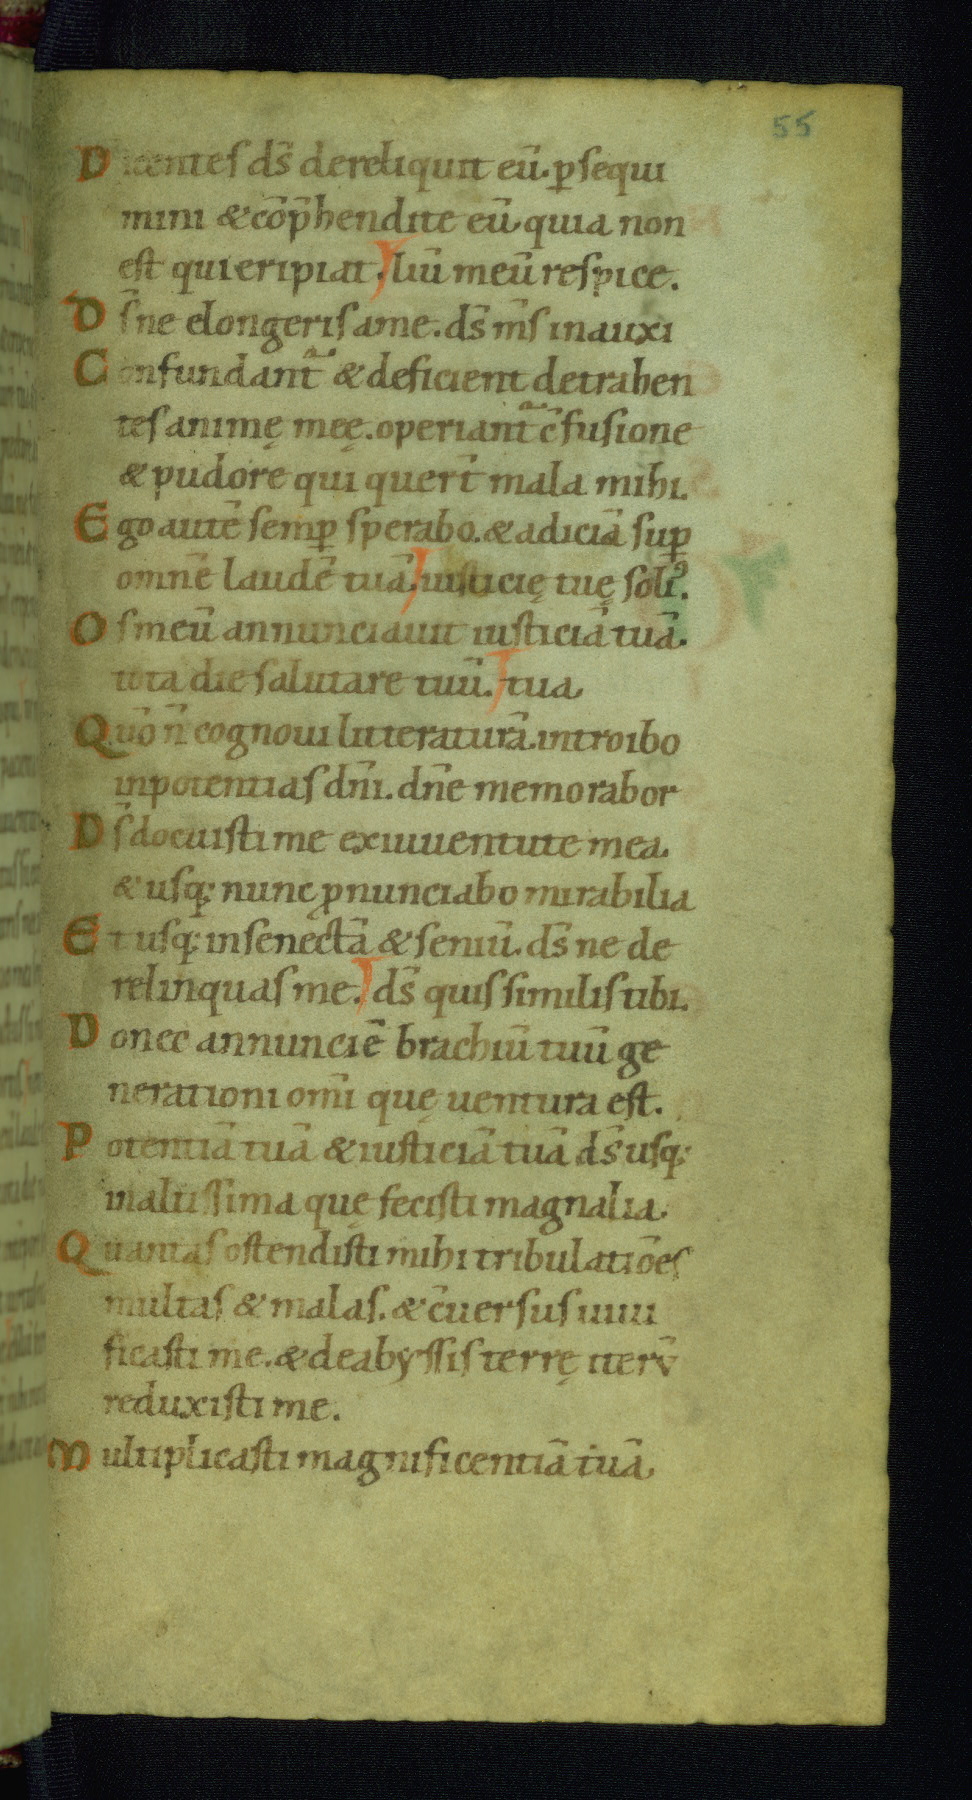 55
Dicentes ds̄ dereliquit eū. ꝑsequi
mini & cōp̄hendite eū quia non
est qui eripiat. liū meū respice.
Ds̄ ne elongeris a me. ds̄ m̄s in auxi
Confundant̄ᵃ & deficient detrahen
tes animę meę. operiant̄ᵃ c̄fusione
& pudore qui quer̄t mala mihi.
Ego autē semꝑ sperabo. & adiciā suꝑ
omnē laudē tuā. iusticię tuę soliꝰ.
Os meū annunciauit iusticiā tuā.
tota die salutare tuū. tua
Quō n̄ cognoui litteraturā. introibo
in potentias dn̄i. dn̄e memorabor
Ds̄ docuisti me ex iuuentute mea.
& usq; nunc ꝓnunciabo mirabilia
Et usq; in senectā & seniū. ds̄ ne de
relinquas me. ds̄ quis similis tibi.
Donec annunciē brachiū tuū ge
nerationi om̄i quę uentura est.
Potentiā tuā & iusticiā tuā ds̄ usq;
in altissima quę fecisti magnalia.
Quantas ostendisti mihi tribulatiōes
multas & malas. & c̄uersus uiui
ficasti me. & de abyssis terrę iterū
reduxisti me.
Multiplicasti magnificentiā tuā